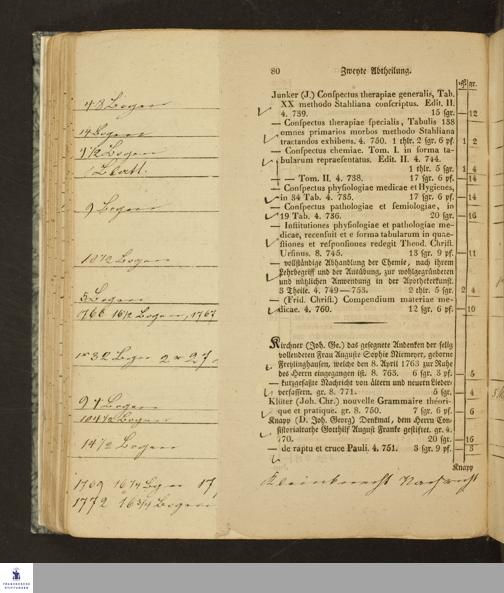 48 Bogen
14 Bogen
9 1/2 Bogen
9 Bogen
10 1/2 Bogen
5 Bogen
1766 16 1/2 Bogen, 1767
9 1 Bogen
10 4/2 Bogen
14 1/2 Bogen
1769 16 1/4 Bogen 17
1772 16 3/4 Bogen
80 Zweyte Abtheilung.
gr.
Junker (J.) Conspectus therapiae generalis, Tab.
XX methodo Stahliana conscriptus. Edit. II.
4. 739. 15 sgr. 12
— Conspectus therapiae specialis, Tabulis 138
omnes primarios morbos methodo Stahliana
tractandos exhibens. 4. 750. 1 thlr. 2 sgr. 6 pf. 1 2
— Conspectus chemiae. Tom. I. in forma ta-
bularum repraesentatus. Edit. II. 4. 744.
1 thlr. 5 sgr. 1 4
— — Tom. II. 4. 738. 17 sgr. 6 pf. 14
— Conspectus physiologiae medicae et Hygienes,
in 34 Tab. 4. 735. 17 sgr. 6 pf. 14
— Conspectus pathologiae et semiologiae, in
19 Tab. 4. 736. 20 sgr. 16
— Institutiones physiologiae et pathologiae me-
dicae, recensuit et e forma tabularum in quae-
stiones et responsiones redegit Theod. Christ.
Ursinus. 8. 745. 13 sgr. 9 pf. 11
— vollständige Abhandlung der Chemie, nach ihrem
Lehrbegriff und der Ausübung, zur wohlgegründeten
und nützlichen Anwendung in der Apothekerkunst.
3 Theile. 4. 749—753. 2 thlr. 5 sgr. 2 4
— (Frid. Christ.) Compendium materiae me-
dicae. 4. 760. 12 sgr. 6 pf. 10
Kirchner (Joh. Ge.) das gesegnete Andenken der selig
vollendeten Frau Auguste Sophie Niemeyer, geborne
Freylinghausen, welche den 8. April 1763 zur Ruhe
des Herrn eingegangen ist. 8. 763. 6 sgr. 3 pf. 5
— kurzgefaßte Nachricht von ältern und neuern Lieder-
verfassern. gr. 8. 771. 5 sgr. 4
Klüter (Joh. Chr.) nouvelle Grammaire théori-
que et pratique. gr. 8. 750. 7 sgr. 6 pf. 6
Knapp (D. Joh. Georg) Denkmal, dem Herrn Con-
sistorialrathe Gotthilf August Franke gestiftet. gr. 4.
770. 20 sgr. 16
— de raptu et cruce Pauli. 4. 751. 3 sgr. 9 pf. 3
Knapp